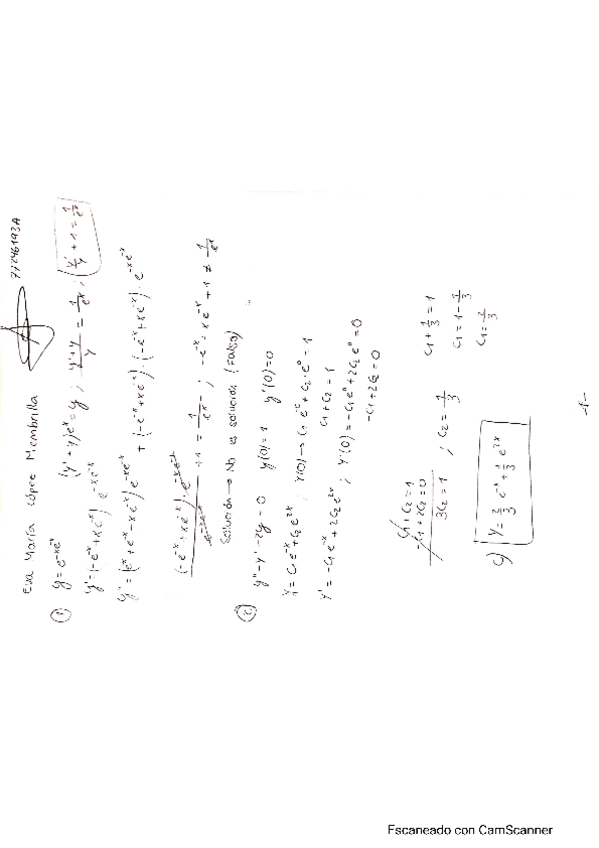 Eva María López Membrilla 77246193A
① y = e^{-xe^{-x}} (y'+y)e^x = y ; \frac{y'+y}{y} = \frac{1}{e^x} ; \frac{y'}{y} + 1 = \frac{1}{e^x}
y' = (-e^{-x} + xe^{-x}) e^{-xe^{-x}}
+ (-e^{-x} + xe^{-x}) · (-e^{-x} + xe^{-x}) · e^{-xe^{-x}}
Solución → No es solución (Falsa)
② y'' - y' - 2y = 0 y(0) = 1 y'(0) = 0
y = C_1 e^{-x} + C_2 e^{2x} ; y(0) → C_1 e^{-0} + C_2 · e^0 = 1
C_1 + C_2 = 1
y' = -C_1 e^{-x} + 2C_2 e^{2x} ; y'(0) = -C_1 e^0 + 2C_2 e^0 = 0
-C_1 + 2C_2 = 0
C_1 + C_2 = 1
-C_1 + 2C_2 = 0
3C_2 = 1 ; C_2 = \frac{1}{3}
C_1 + \frac{1}{3} = 1
C_1 = 1 - \frac{1}{3}
c) y = \frac{2}{3} e^{-x} + \frac{1}{3} e^{2x}
-1-
Escaneado con CamScanner